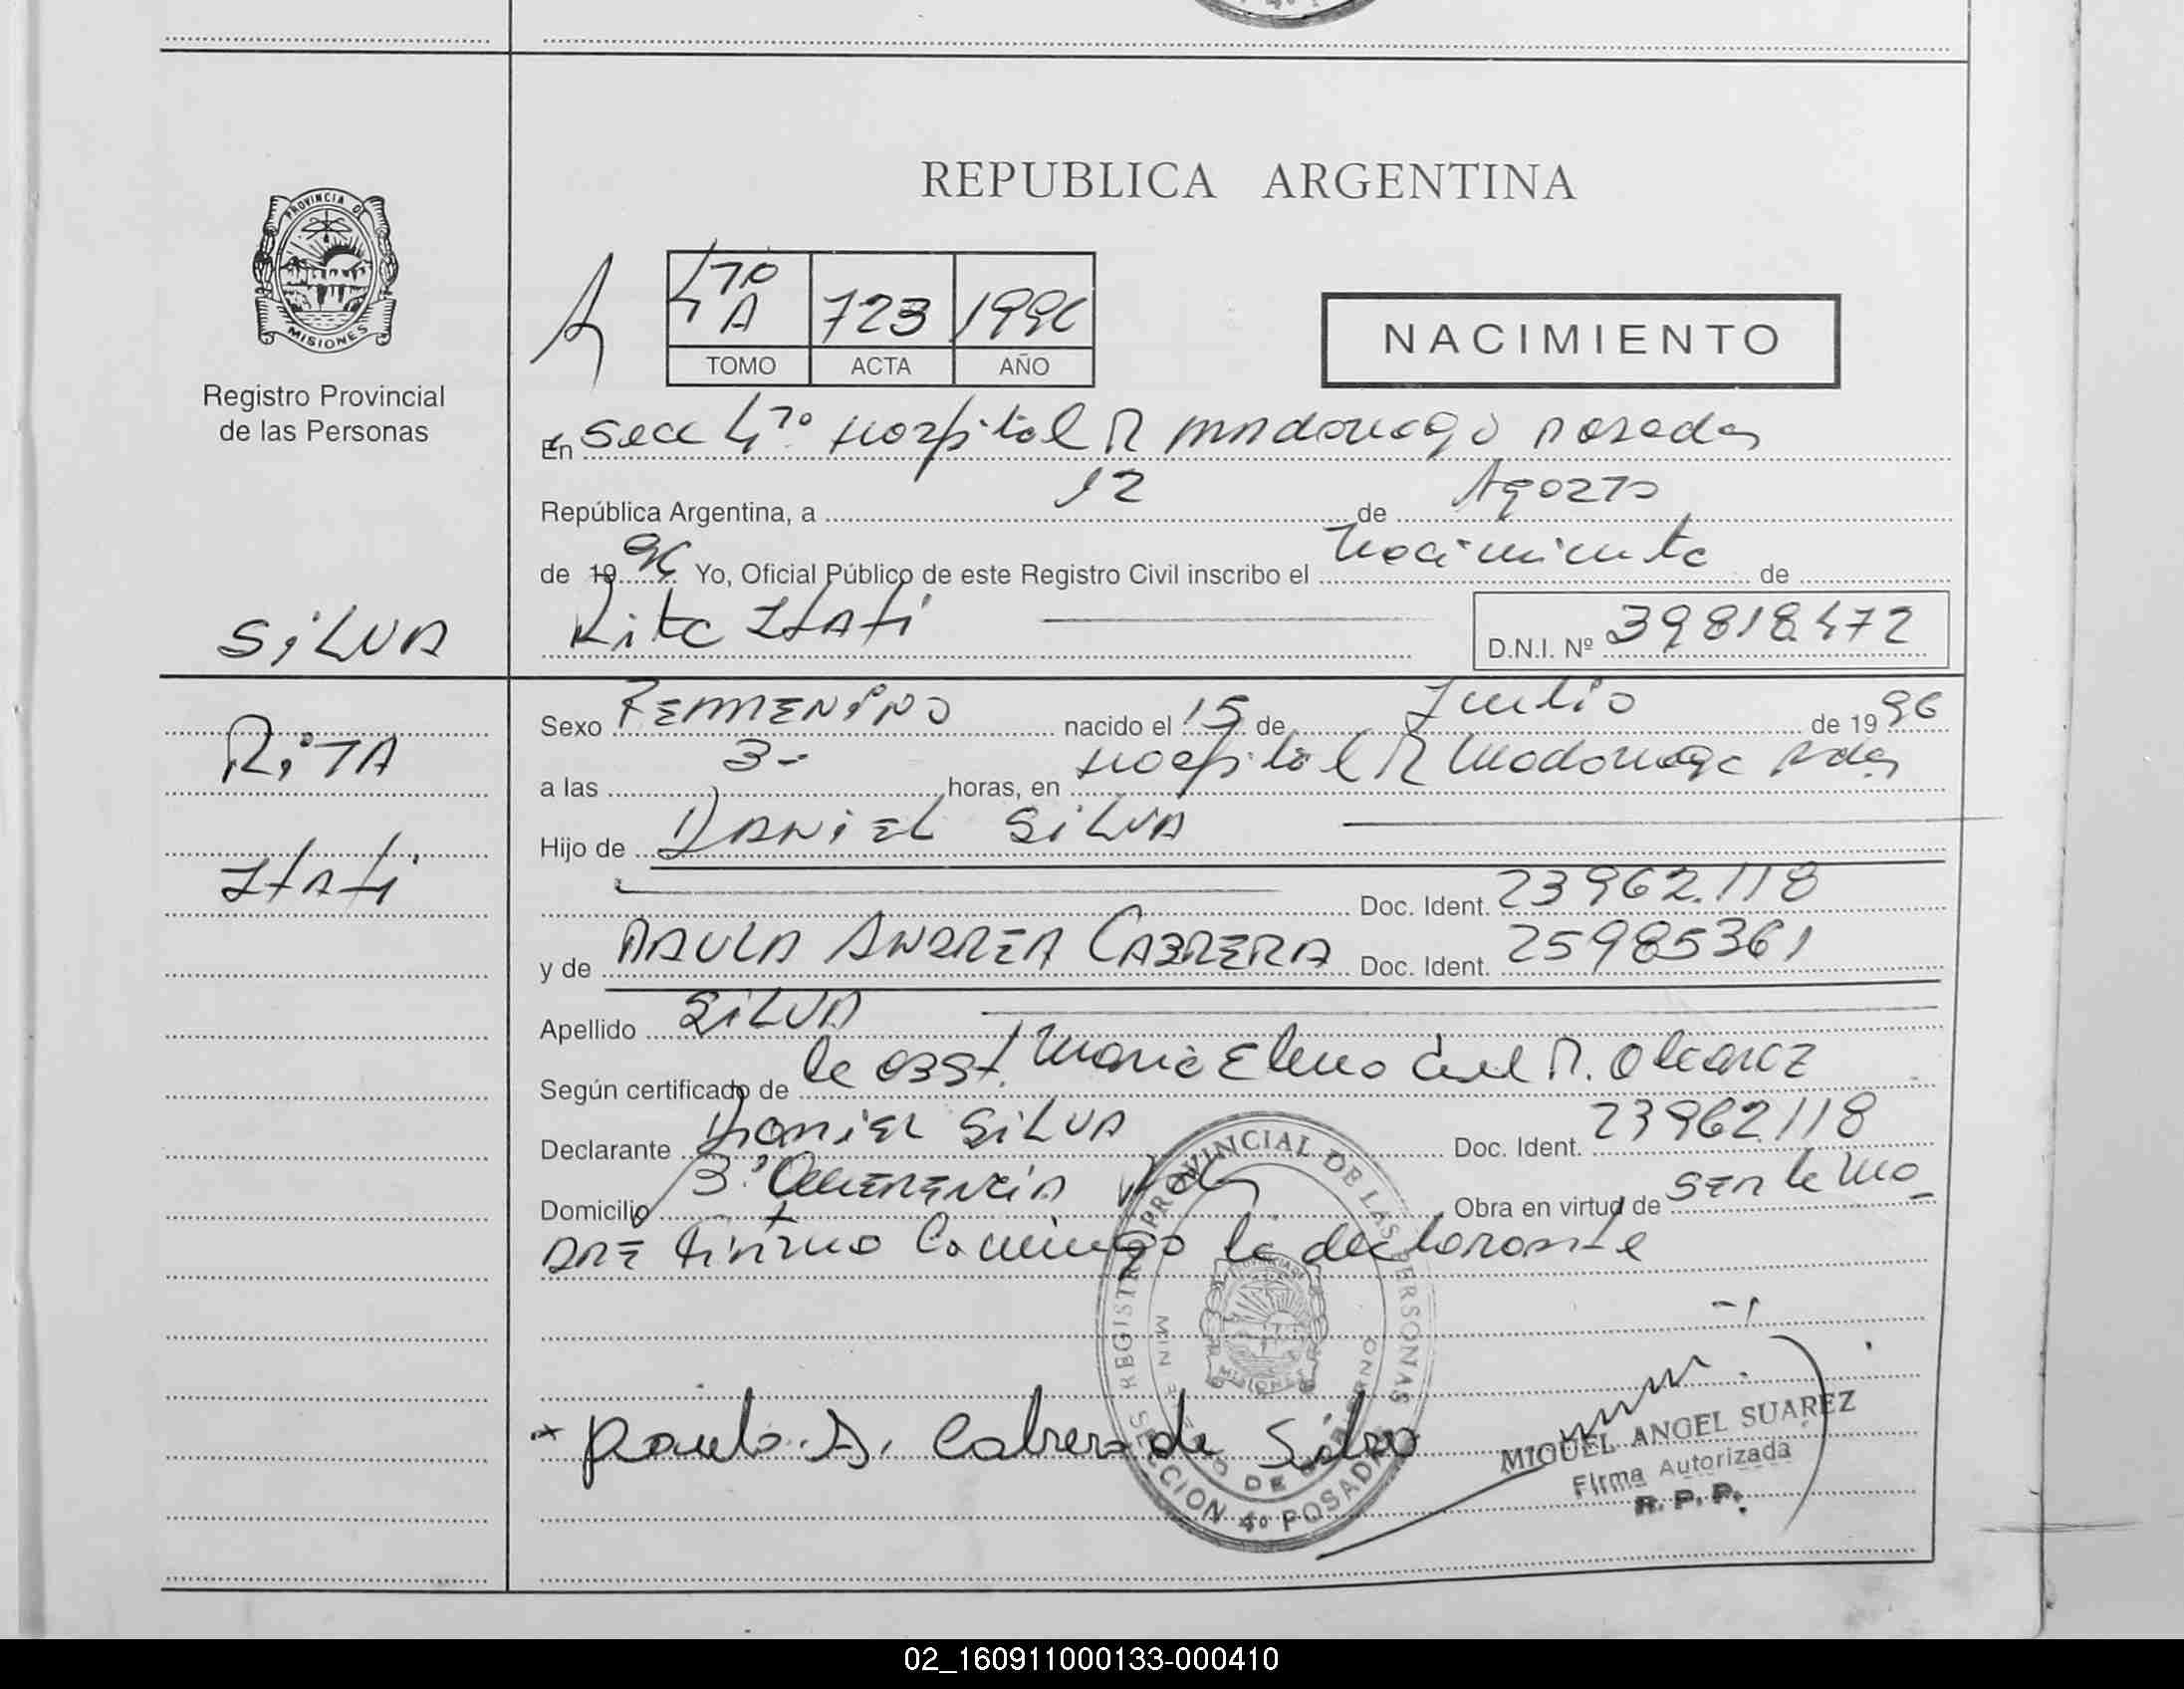 REPUBLICA ARGENTINA
PROVINCIA DE
MISIONES
Registro Provincial
de las Personas
4to A 723 1996
TOMO ACTA AÑO
NACIMIENTO
En Secc 4to. Hospital R Madariaga Posadas
República Argentina, a 12 de Agosto
de 1996 Yo, Oficial Público de este Registro Civil inscribo el Nacimiento de
Rita Itatí D.N.I. Nº 39.818.472
SILVA
RITA
Itatí
Sexo FEMMENINO nacido el 15 de Julio de 1996
a las 3- horas, en Hospital R Madariaga Pdas
Hijo de DANIEL SILVA
Doc. Ident. 23962.118
y de PAULA ANDREA CABRERA Doc. Ident. 25985361
Apellido SILVA
Según certificado de la obst. Maria Elena del R.
Declarante DANIEL SILVA Doc. Ident. 23962118
Domicilio Pdas Obra en virtud de SER la Ma
DRE Firma Conmigo la declarante
Paula A. Cabrera de Silva
REGISTRO PROVINCIAL DE LAS PERSONAS
MINISTERIO DE GOBIERNO
MISIONES
SECCION 4º POSADAS
MIGUEL ANGEL SUAREZ
Firma Autorizada
R. P. P.
02_160911000133-000410